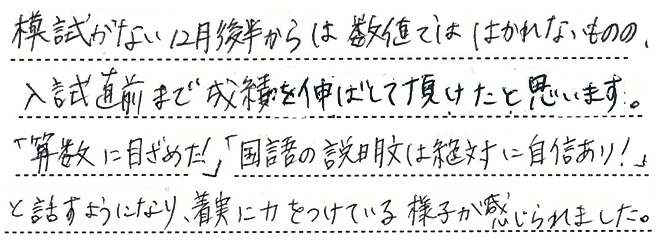 模試がない12月後半からは数値でははかれないものの、
入試直前まで成績を伸ばして頂けたと思います。
「算数に目ざめた!」「国語の説明文は絶対に自信あり!」
と話すようになり、着実に力をつけている様子が感じられました。